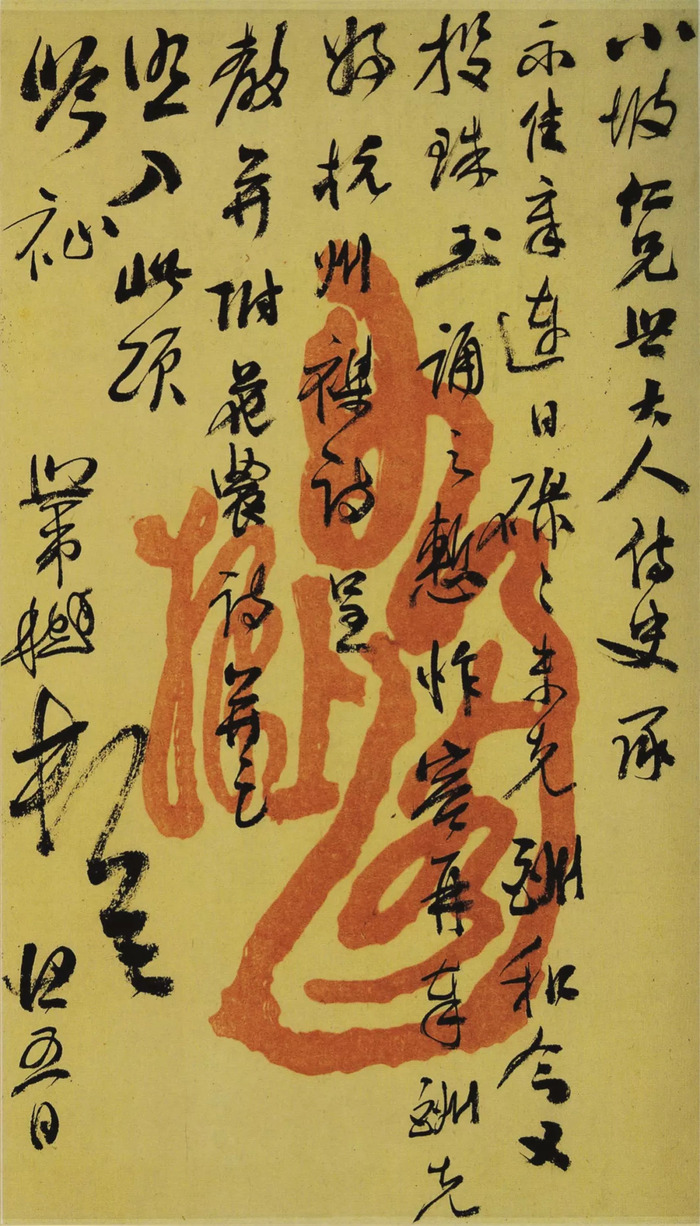 小坡仁兄世大人侍史承
示佳章連日碌碌未克酬和今又
投珠玉誦之慙怍容再奉酬先
將杭州襍詩呈
教并附花農詩并乞
入此頌
吟祉 世弟樾頓首 五日